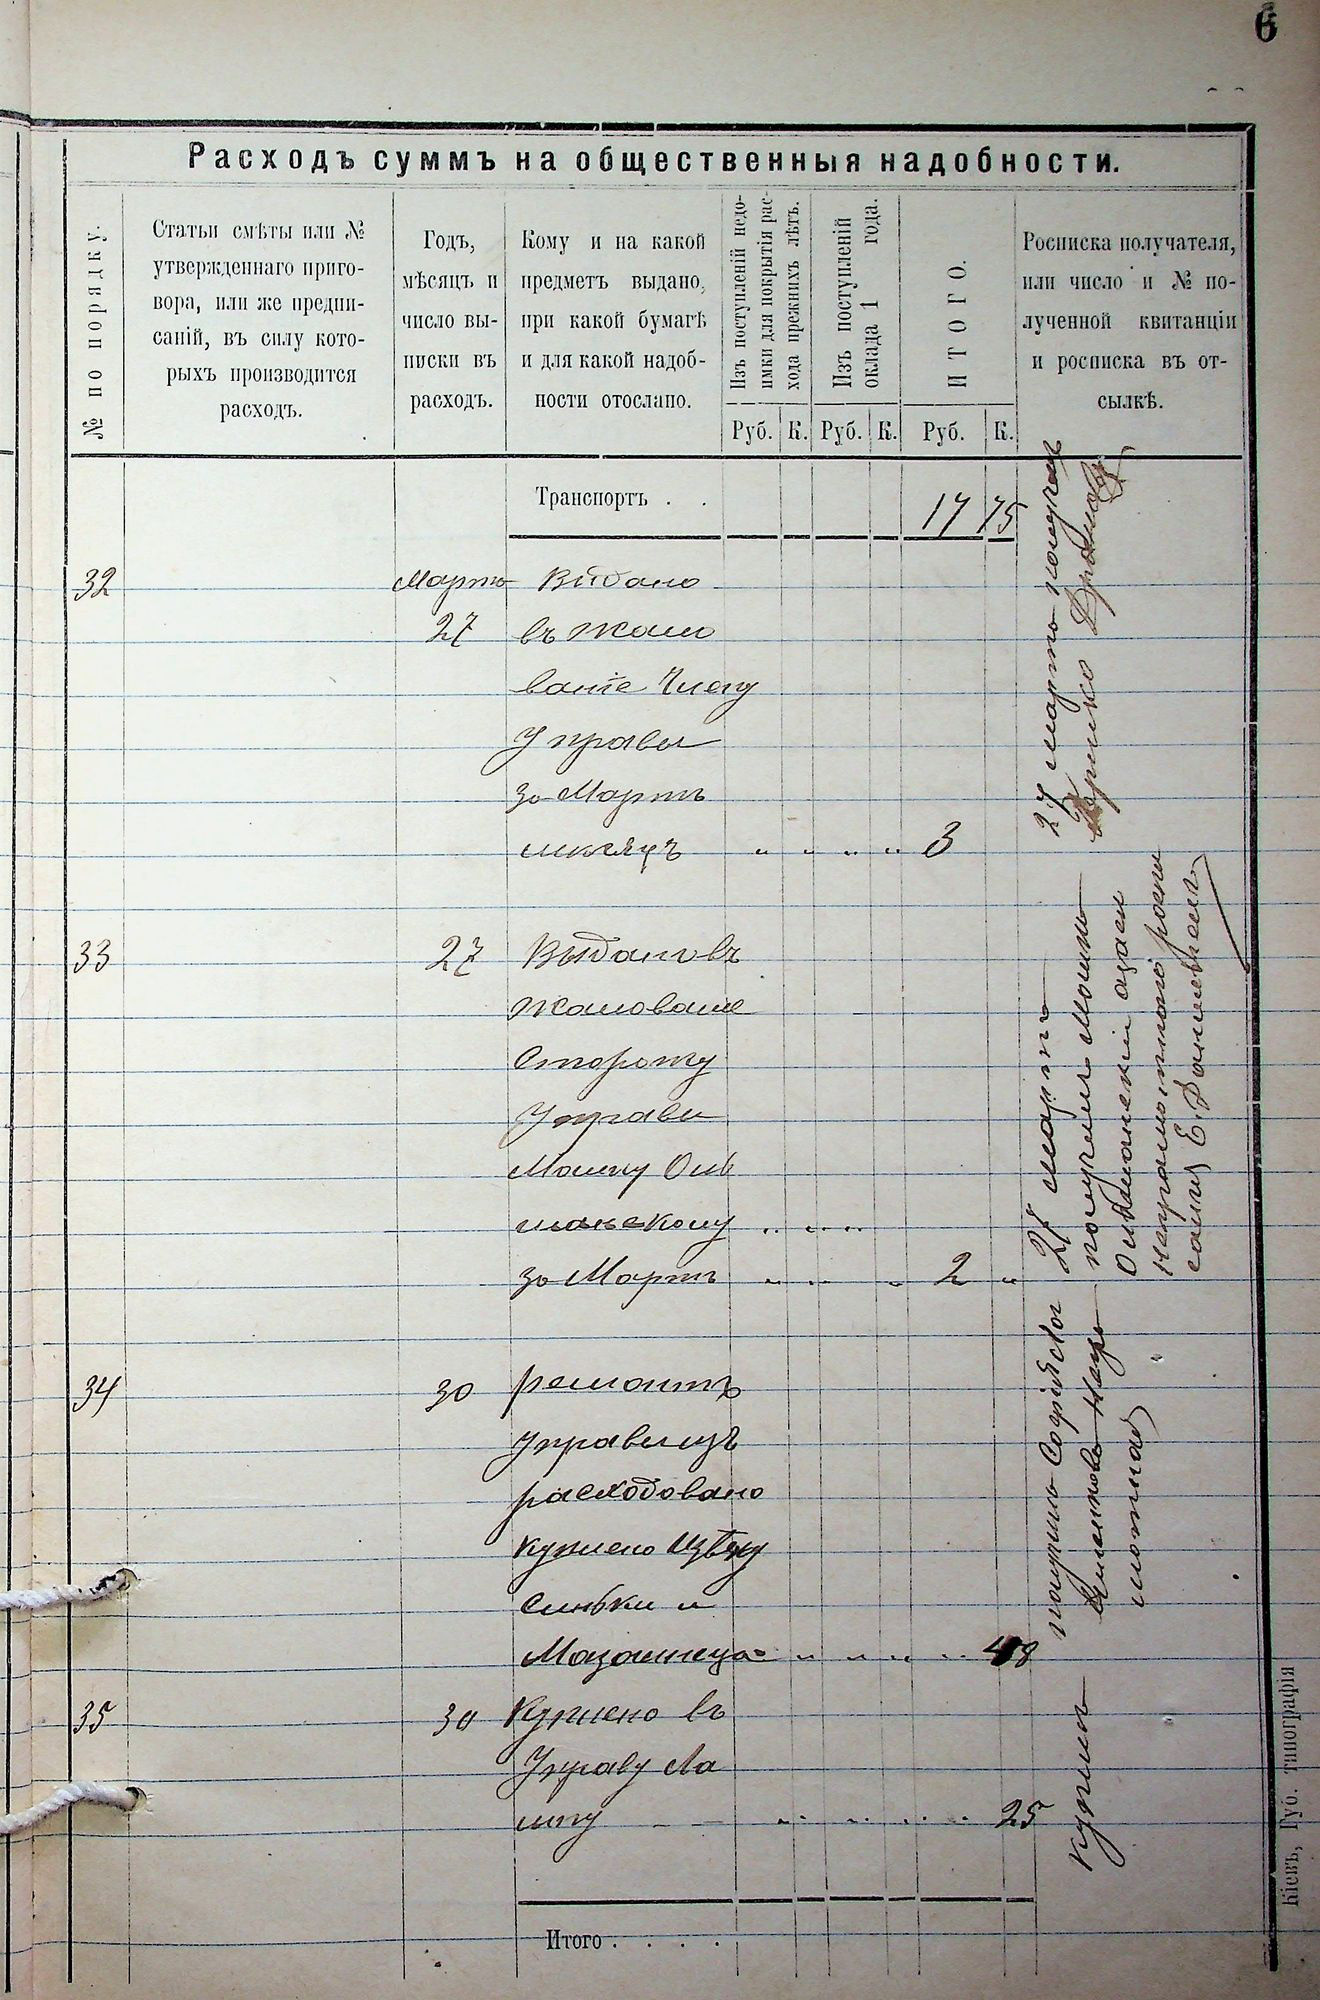 6
Расходъ суммъ на общественныя надобности.
№ по порядку.
Статьи смѣты или №
утвержденнаго приго-
вора, или же предпи-
саній, въ силу кото-
рыхъ производится
расходъ.
Годъ,
мѣсяцъ и
число вы-
писки въ
расходъ.
Кому и на какой
предметъ выдано,
при какой бумагѣ
и для какой надоб-
ности отослано.
Изъ поступленій недо-
имки для покрытія рас-
хода прежнихъ лѣтъ.
Изъ поступленій
оклада 1 года.
ИТОГО.
Росписка получателя,
или число и № по-
лученной квитанціи
и росписка въ от-
сылкѣ.
Руб. К. Руб. К. Руб. К.
Транспортъ . . 17 75
32 Мартъ Видано
27 въ жало
ваніе Члену
Управы
за Мартъ
мѣсяцъ " " " " 3
27 марта получилъ
33 27 Выдановъ
жалование
Сторожу
Управи
Мошку Оль
шанскому " " "
за Мартъ " " " 2 "
27 марта
получилъ Мошко
Ольшанскій азаеи
неграмотнаго роспи
салц Е. Данилевичъ
34 30 ремонтъ
управи изъ
расходовано
куплено
синьки и
" " " " 48
получила Софія
мотная
35 30 Куплено въ
Управу Ла
мпу " " " " 25
купилъ
Итого . . . .
Кіевъ, Губ. типографія